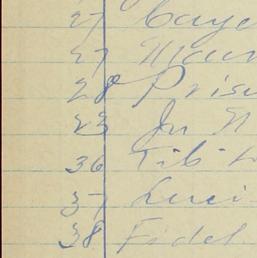 27 Caye
27 Mau
28 Pris
23 In N
36 Tib
37 Luci
38 Fidel